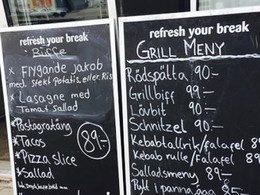 refresh your break
Biffé
* Flygande jakob
med stekt Potatis, eller Ris
* Lasagne med
Tomat Sallad
* Pastagratäng
* Tacos
* Pizza slice
* Sallad
89:-
refresh your break
GRILL MENY
Rödspätta 90:-
Grillbiff 99:-
Lövbit 90:-
Schnitzel 90:-
Kebabtallrik/falafel 89
Kebab rulle/falafel 8
Salladsmeny 89:-
Pytt i panna